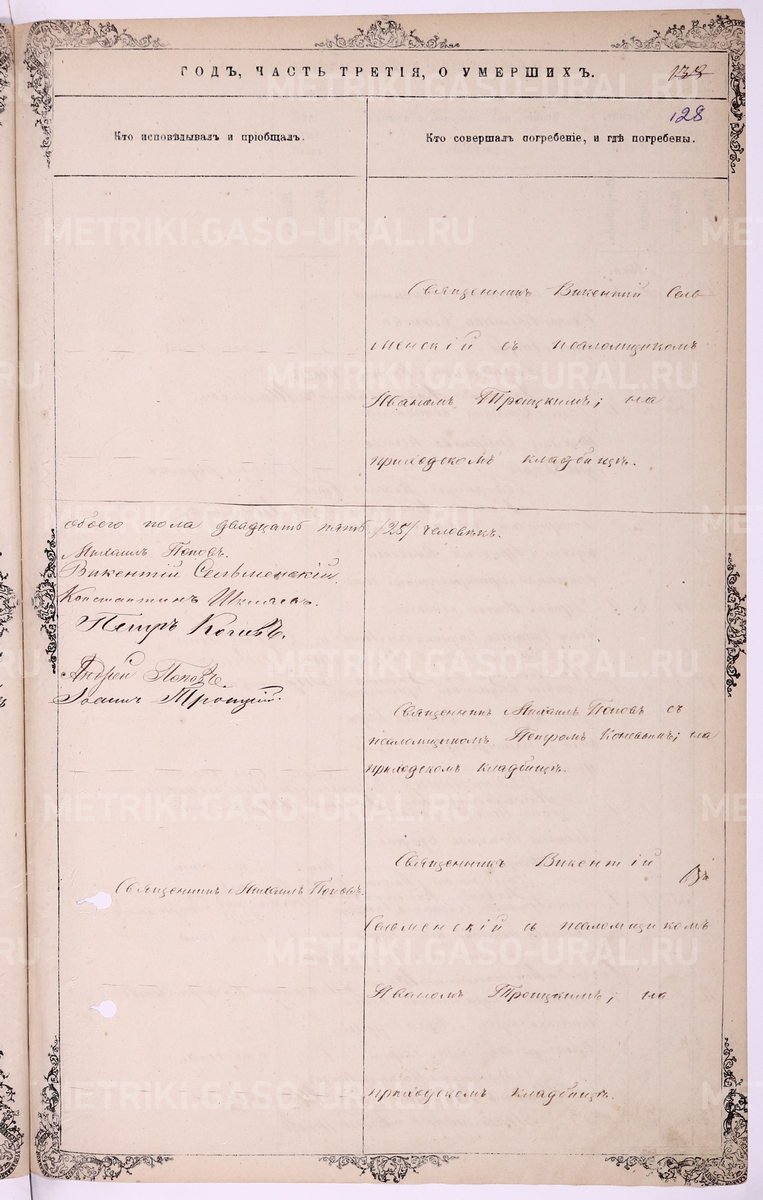 ГОДЪ, ЧАСТЬ ТРЕТІЯ, О УМЕРШИХЪ.
138
128
Кто исповѣдывалъ и пріобщалъ.
Кто совершалъ погребеніе, и гдѣ погребены.
METRIKI.GASO-URAL.RU
Священникъ Викентій Сель-
менскій съ псаломщикомъ
Иваномъ Троицкимъ; на
приходскомъ кладбищѣ.
обоего пола двадцать пять /25/ человѣкъ.
Михаилъ Поповъ.
Викентій Сельменскій.
Константинъ
Петръ
Андрей Поповъ.
Іоаннъ Троицкій.
Священникъ Михаилъ Поповъ съ
псаломщикомъ Петромъ на
приходскомъ кладбищѣ.
Священникъ Михаилъ Поповъ.
Священникъ Викентій
Сельменскій съ псаломщикомъ
Иваномъ Троицкимъ; на
приходскомъ кладбищѣ.